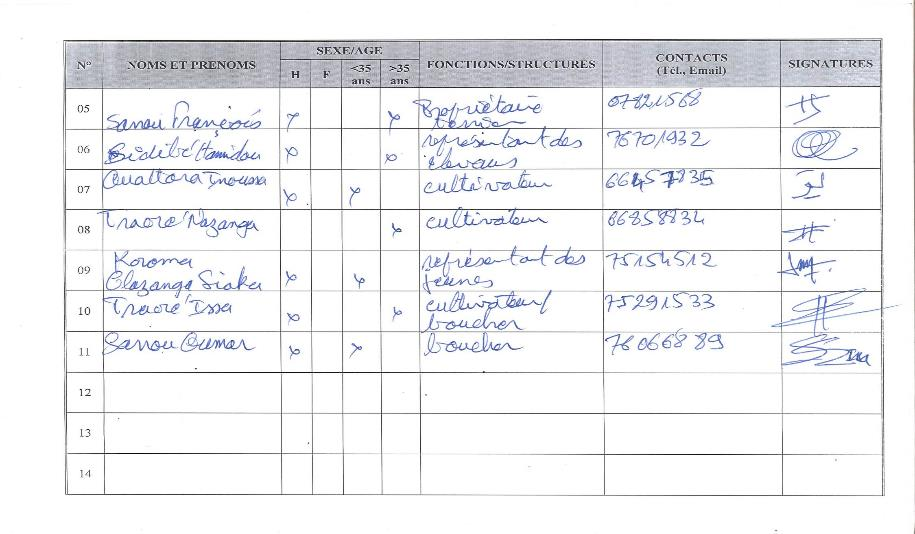 N° NOMS ET PRENOMS SEXE/AGE FONCTIONS/STRUCTURES CONTACTS (Tél., Email) SIGNATURES
H F <35 ans >35 ans
05 Sanou François x x Propriétaire terrien 07821568
06 Sidibé Hamidou x x représentant des éleveurs 76701932
07 Ouattara Inoussa x x cultivateur 66457835
08 Traoré Nazanga x cultivateur 66858834
09 Koroma Olazanga Siaka x x représentant des jeunes 75154512
10 Traoré Issa x x cultivateur/ boucher 75291533
11 Sanou Oumar x x boucher 76066889
12
13
14